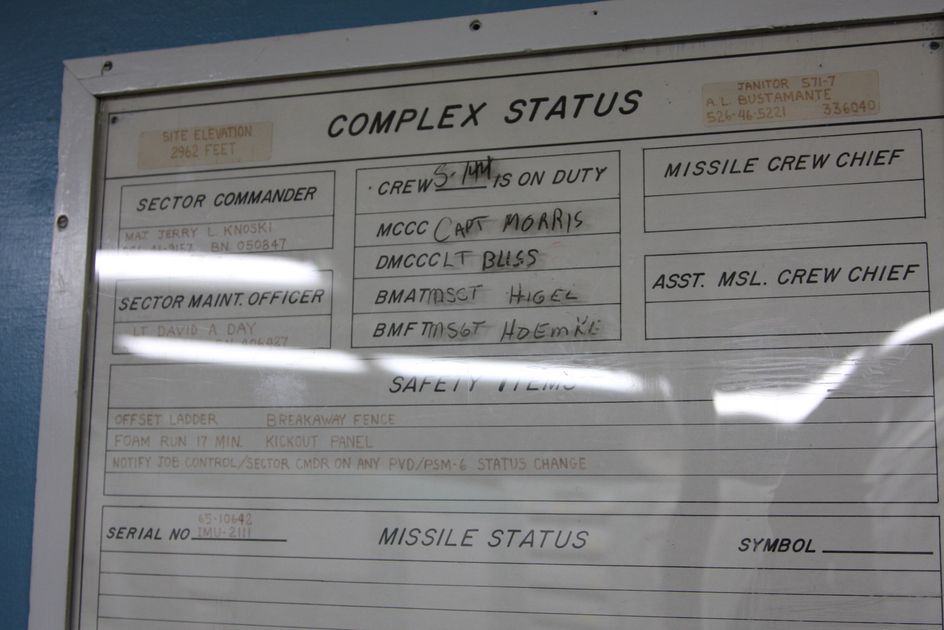 COMPLEX STATUS
SITE ELEVATION
2962 FEET
JANITOR 571-7
A. L. BUSTAMANTE
526-46-5221 336040
SECTOR COMMANDER
MAJ JERRY L. KNOSKI
BN 050847
SECTOR MAINT. OFFICER
LT DAVID A DAY
CREW S-144 IS ON DUTY
MCCC CAPT MORRIS
DMCCC LT BLISS
BMAT MSGT HIGEL
BMFT MSGT HOEMKE
MISSILE CREW CHIEF
ASST. MSL. CREW CHIEF
SAFETY ITEMS
OFFSET LADDER BREAKAWAY FENCE
FOAM RUN 17 MIN. KICKOUT PANEL
NOTIFY JOB CONTROL/SECTOR CMDR ON ANY PVD/PSM-6 STATUS CHANGE
65-10642
SERIAL NO IMU-2111
MISSILE STATUS
SYMBOL